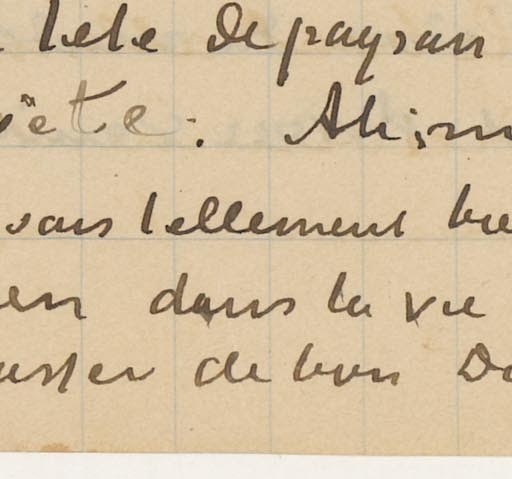 tête de paysan
ète. Ah! m
sais tellement bie
en dans la vie
usser de bon Da